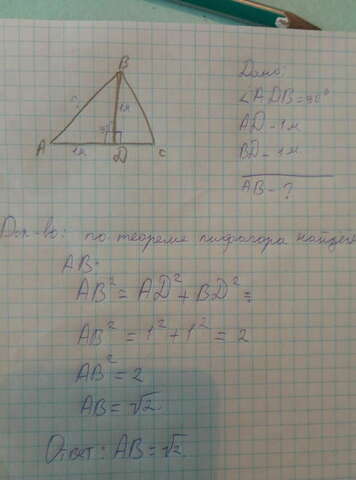 B
1м
90°
A
1м
D
C
Дано:
∠ADB=90°
AD-1м
BD-1м
AB-?
Док-во: по теореме пифагора найдем
AB:
AB² = AD² + BD² =
AB² = 1² + 1² = 2
AB² = 2
AB = √2.
Ответ: AB = √2.